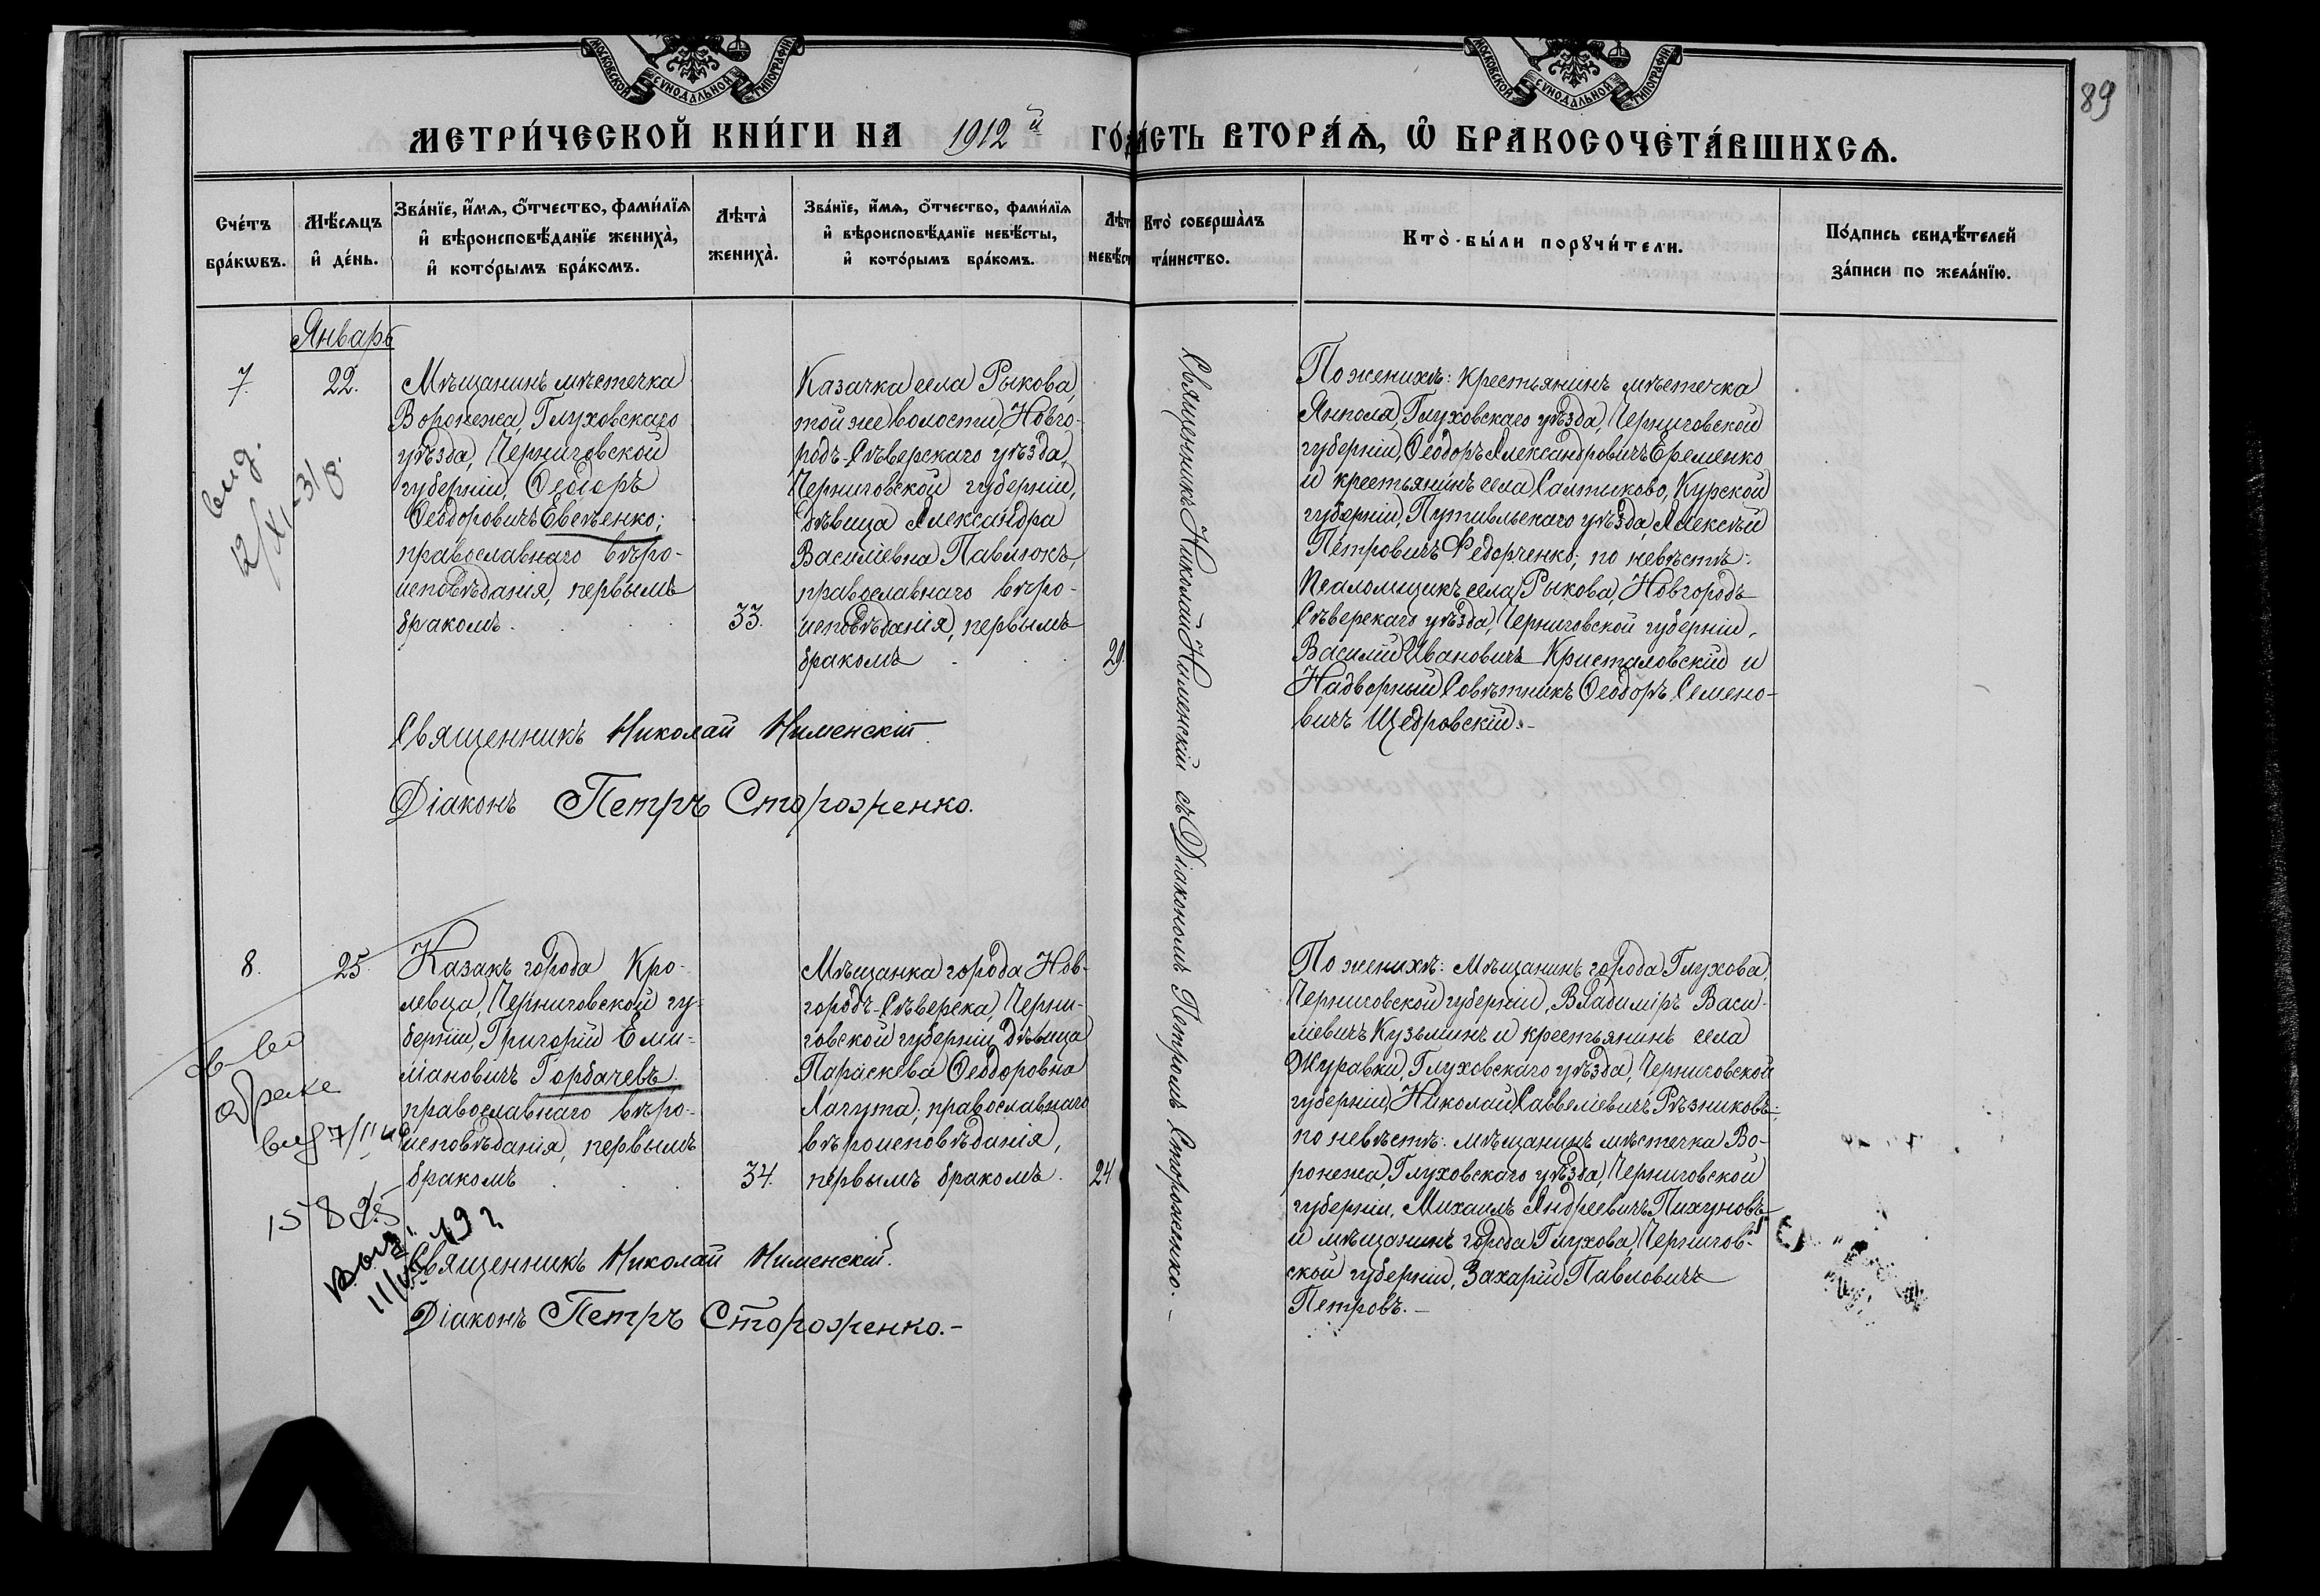 МОСКОВСКОЙ СѴНОДАЛЬНОЙ ТИПОГРАФІИ
МОСКОВСКОЙ СѴНОДАЛЬНОЙ ТИПОГРАФІИ
89
МЕТРИ́ЧЕСКОЙ КНИ́ГИ НА 1912й ГО́Д
А́СТЬ ВТОРА́Ѧ, Ѡ҆ БРАКОСОЧЕТА́ВШИХСѦ.
Сче́тъ
бра́кѡвъ.
Мѣ́сѧцъ
и҆ де́нь.
Зва́нїе, и҆́мѧ, ѻ҆́тчество, фами́лїѧ
и҆ вѣроисповѣ́данїе жениха̀,
и҆ кото́рымъ бра́комъ.
Лѣта̀
жениха̀.
Зва́нїе, и҆́мѧ, ѻ҆́тчество, фами́лїѧ
и҆ вѣроисповѣ́данїе невѣ́сты,
и҆ кото́рымъ бра́комъ.
Лѣт
невѣ́ст
Кто̀ соверша̀лъ
та́инство.
Кто̀ бы́ли порꙋчи́тели.
По́дпись свидѣ́телей
за́писи по жела́нїю.
Январь
7.
22.
Мѣщанинъ мѣстечка
Воронежа, Глуховскаго
уѣзда, Черниговской
губерніи, Ѳеодоръ
Ѳеодоровичъ Евсѣенко;
православнаго вѣро-
исповѣданія, первымъ
бракомъ.
33.
Казачка села Рыкова,
той же волости, Новго-
родъ-Сѣверскаго уѣзда,
Черниговской губерніи,
дѣвица Александра
Василіевна Павлюкъ,
православнаго вѣро-
исповѣданія, первымъ
бракомъ
29.
Священникъ Николай Нименскій съ Діакономъ Петромъ Стороженко.–
По женихѣ: крестьянинъ мѣстечка
Янполя, Глуховскаго уѣзда, Черниговской
губерніи, Ѳеодоръ Александровичъ Еременко
и крестьянинъ села Салтыково, Курской
губерніи, Путивльскаго уѣзда, Алексѣй
Петровичъ Федорченко; по невѣстѣ:
Псаломщикъ села Рыкова, Новгородъ
Сѣверскаго уѣзда, Черниговской губерніи,
Василій Ивановичъ Кристаловскій и
Надворный Совѣтникъ Ѳеодоръ Семено-
вичъ Щедровскій.–
выд.
12/XI-31
8.
Священникъ Николай Нименскій.
Діаконъ Петръ Стороженко.
8.
25.
Казакъ города Кро-
левца, Черниговской гу-
берніи, Григорій Еми-
ліановичъ Горбачевъ
православнаго вѣро-
исповѣданія, первымъ
бракомъ
34.
Мѣщанка города Нов-
городъ-Сѣверска, Черни-
говской губерніи дѣвица
Параскева Ѳеодоровна
Лагута; православнаго
вѣроисповѣданія,
первымъ бракомъ.
24
По женихѣ: мѣщанинъ города Глухова,
Черниговской губерніи, Владиміръ Васи-
ліевичъ Кузьминъ и крестьянинъ села
Журавки, Глуховскаго уѣзда, Черниговской
губерніи, Николай Савеліевичъ Рѣзниковъ;
по невѣстѣ: мѣщанинъ мѣстечка Во-
ронежа, Глуховскаго уѣзда, Черниговской
губерніи, Михаилъ Андреевичъ Пихуновъ
и мѣщанинъ города Глухова, Чернигов-
ской губерніи, Захарій Павловичъ
Петровъ.–
св-во
о браке
выд 7/II
Священникъ Николай Нименскій.
Діаконъ Петръ Стороженко.–